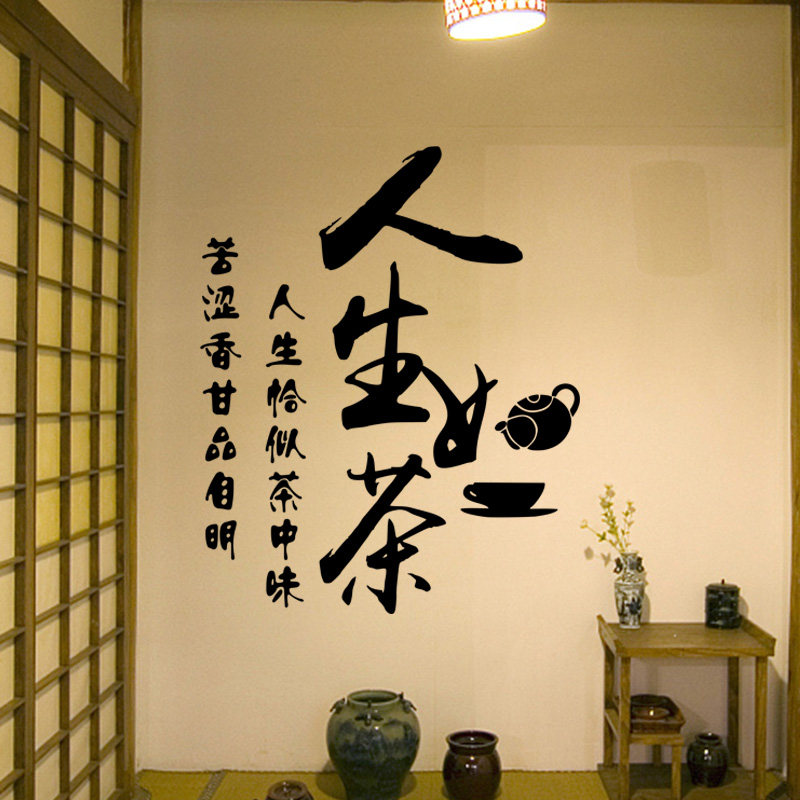 人生如茶
人生恰似茶中味
苦涩香甘品自明